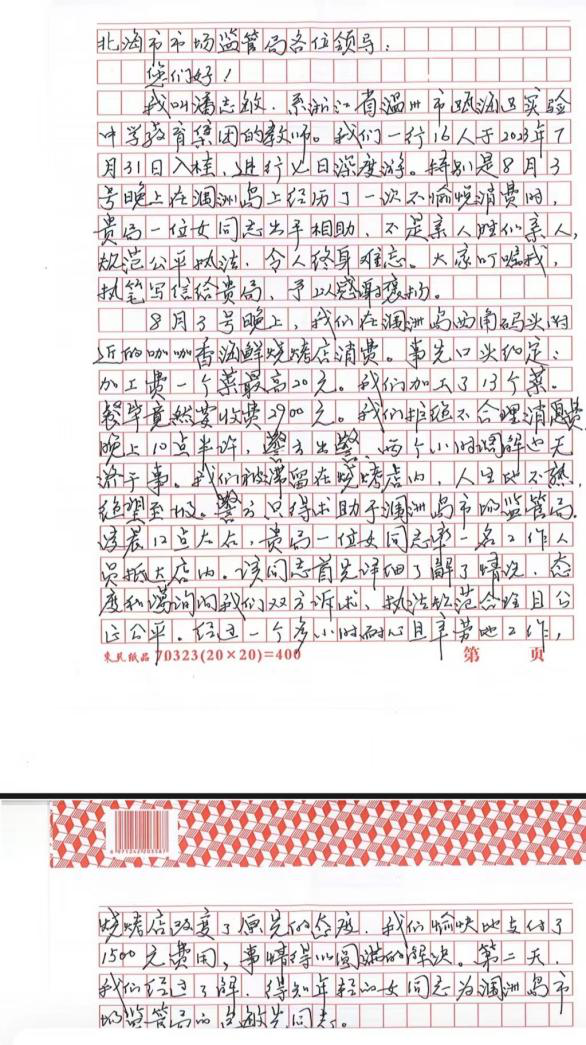 北海市市场监管局各位领导:
您们好!
我叫潘志敏,系浙江省温州市瓯海区实验
中学教育集团的教师。我们一行16人于2023年7
月31日入桂,进行七日深度游。特别是8月3
号晚上在涠洲岛上经历了一次不愉悦消费时,
贵局一位女同志出手相助,不是亲人胜似亲人,
规范公平执法,令人终身难忘。大家叮嘱我,
执笔写信给贵局,予以感谢褒扬。
8月3号晚上,我们在涠洲岛西南码头附
近的咖咖香海鲜烧烤店消费。事先口头约定:
加工费一个菜最高20元。我们加工了13个菜。
餐毕竟然要收费2900元。我们拒绝不合理消费
晚上10点半许,警方出警,两个小时调解也无
济于事。我们被滞留在烧烤店内,人生地不熟,
绝望至极。警方只得求助于涠洲岛市场监管局。
凌晨12点左右,贵局一位女同志率一名工作人
员抵达店内。该同志首先详细了解了情况,态
度和蔼询问我们双方诉求,执法规范合理且公
正公平。经过一个多小时耐心且辛劳地工作,
东风纸品 70323(20×20)=400 第 页
烧烤店改变了原先的态度,我们愉快地支付了
1500元费用,事情得以圆满的解决。第二天,
我们经过了解,得知年轻的女同志为涠洲岛市
场监管局的 同志。